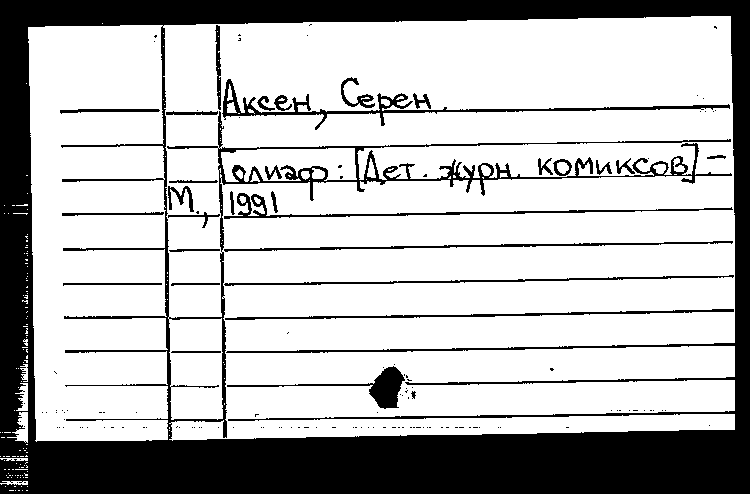 Аксен, Серен.
Голиаф : [Дет. журн. комиксов]. –
М., 1991